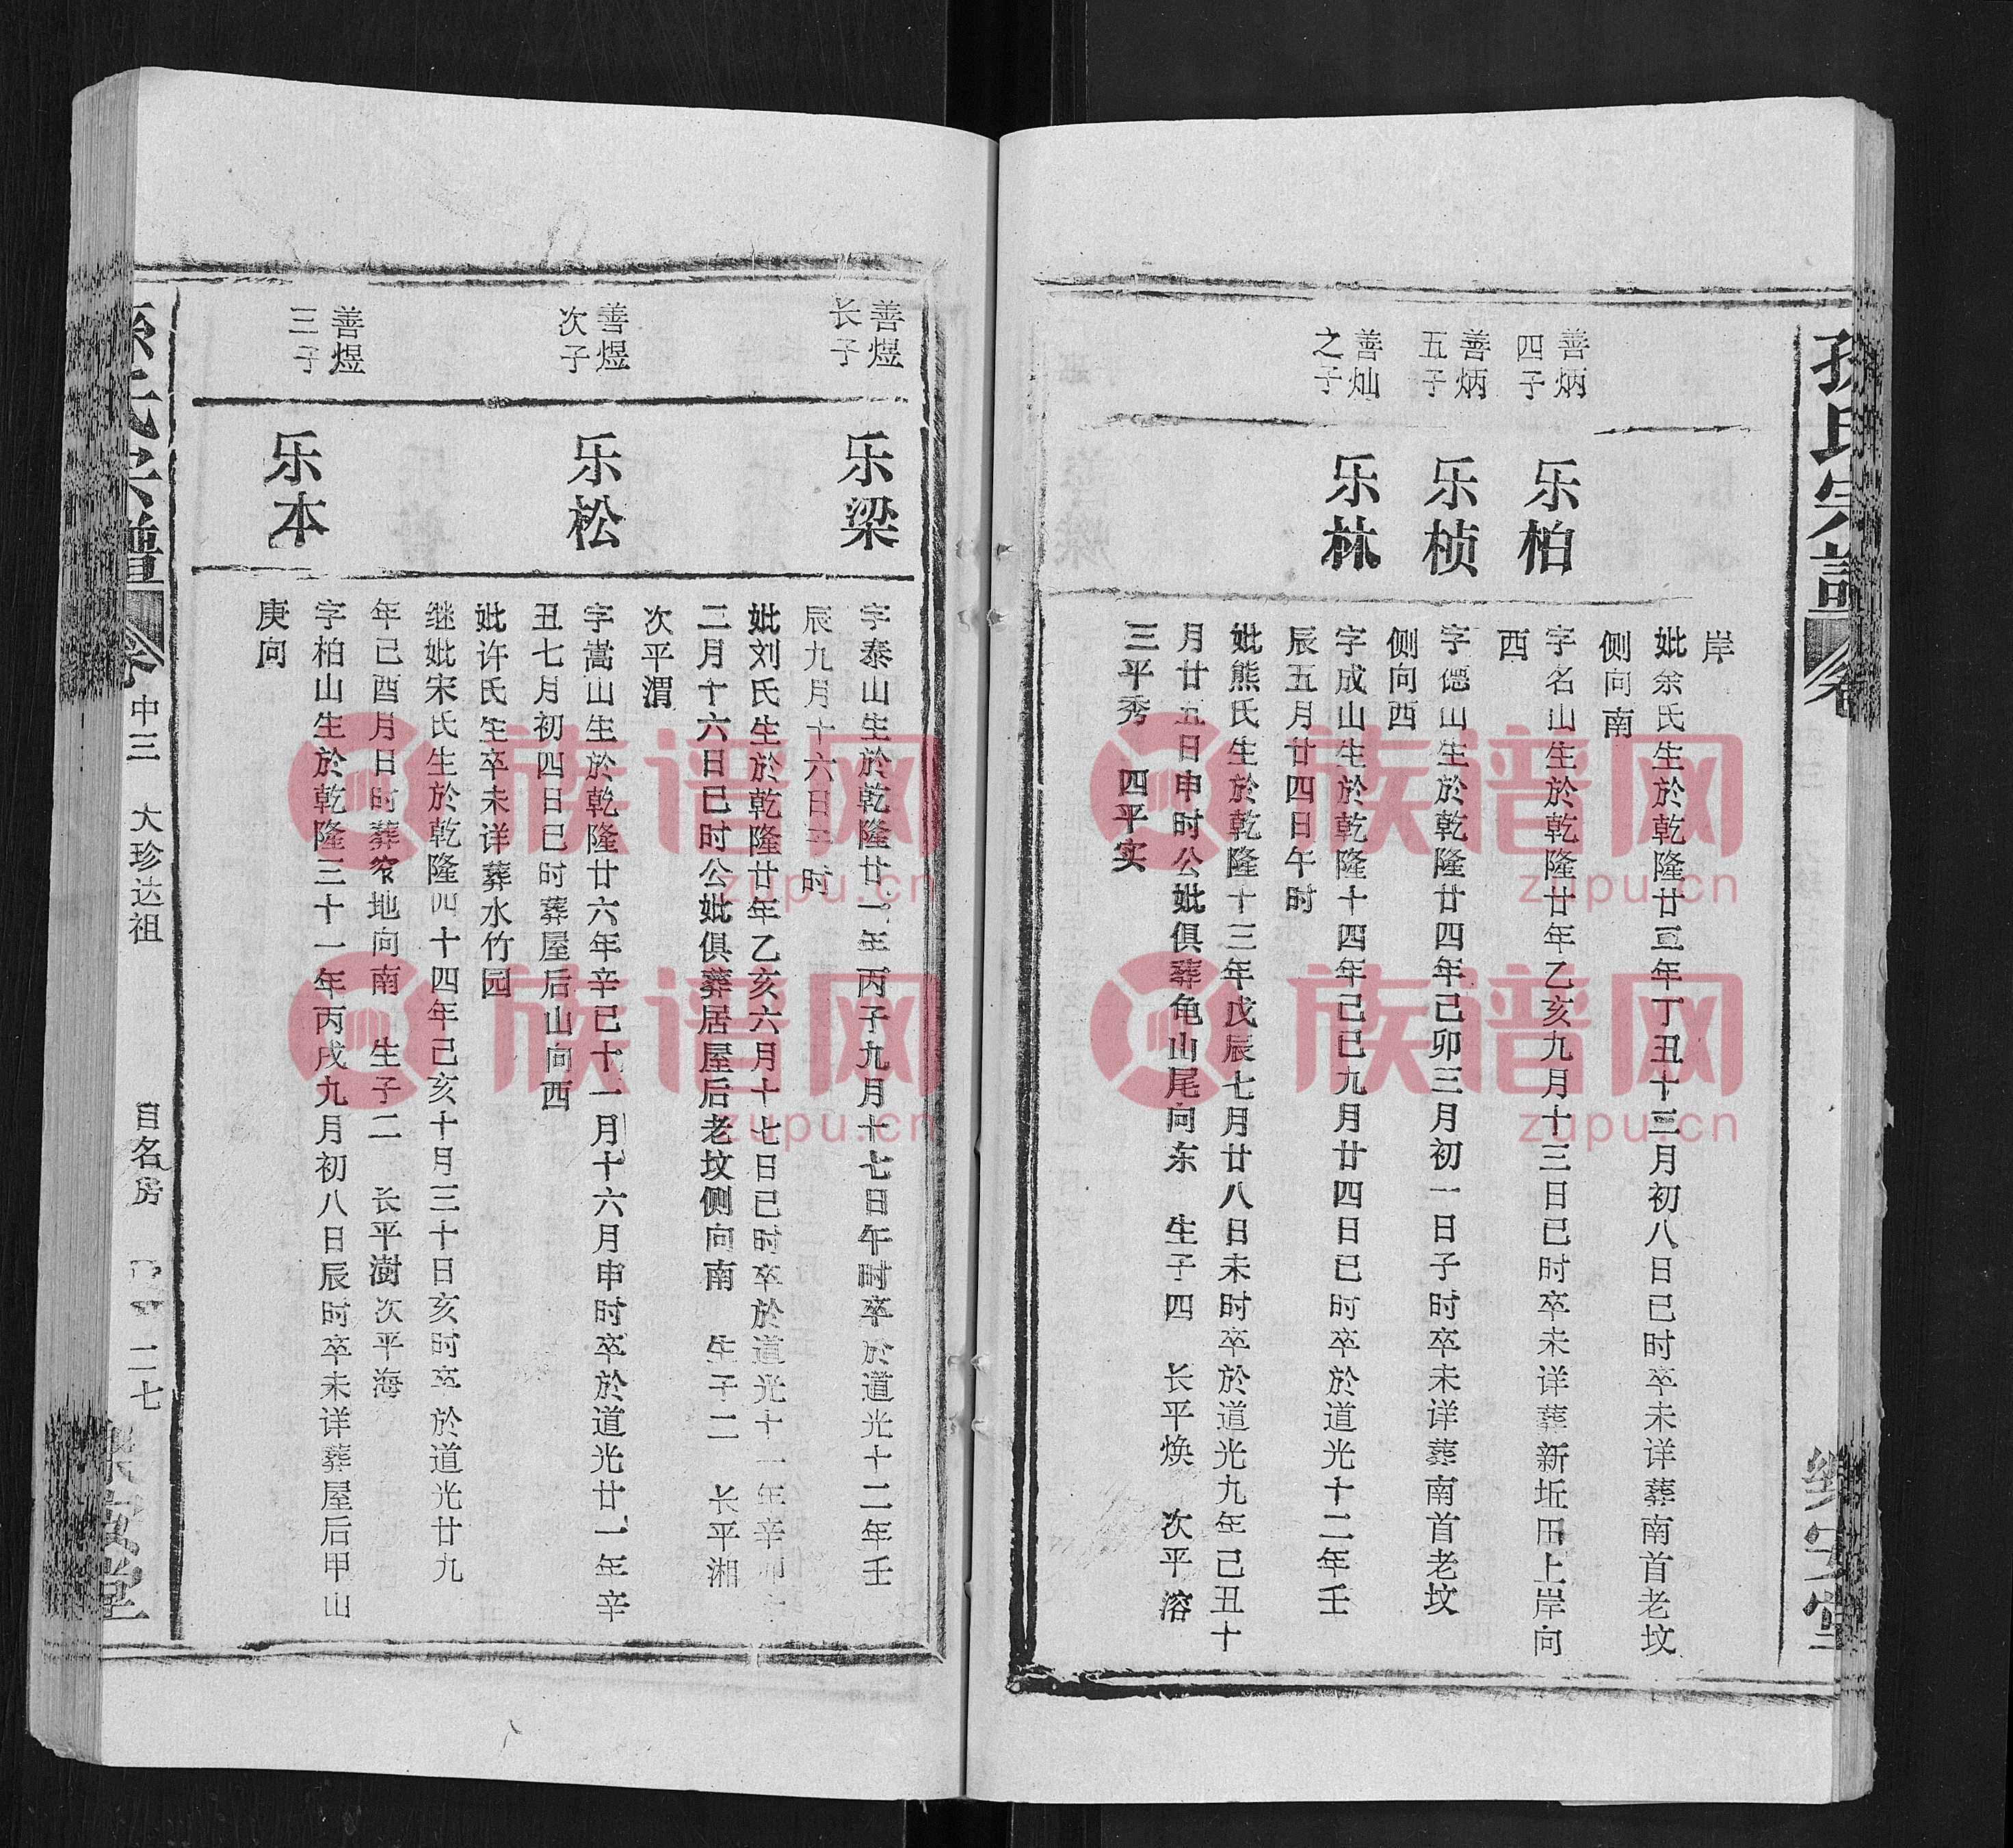 孙氏宗谱
卷
继安堂
岸
妣余氏生於乾隆廿二年丁丑十三月初八日已时卒未详葬南首老坟
侧向南
善炳
四子
乐柏
字名山生於乾隆廿年乙亥九月十三日已时卒未详葬新坵田上岸向
西
善炳
五子
乐桢
字德山生於乾隆廿四年己卯三月初一日子时卒未详葬南首老坟
侧向西
善灿
之子
乐林
字成山生於乾隆十四年己巳九月廿四日已时卒於道光十二年壬
辰五月廿四日午时
妣熊氏生於乾隆十三年戊辰七月廿八日未时卒於道光九年己丑十
月廿五日申时公妣俱葬龟山尾向东 生子四 长平焕 次平溶
三平秀 四平实
善煜
长子
乐梁
字泰山生於乾隆廿一年丙子九月十七日午时卒於道光十二年壬
辰九月十六日 时
妣刘氏生於乾隆廿年乙亥六月十七日已时卒於道光十一年辛卯
二月十六日已时公妣俱葬居屋后老坟侧向南 生子二 长平湘
次平渭
善煜
次子
乐松
字嵩山生於乾隆廿六年辛已十一月十六月申时卒於道光廿一年辛
丑七月初四日已时葬屋后山向西
妣许氏生卒未详葬水竹园
继妣宋氏生於乾隆四十四年己亥十月三十日亥时卒於道光廿九
年己酉月日时葬窄地向南 生子二 长平澍 次平海
善煜
三子
乐本
字柏山生於乾隆三十一年丙戌九月初八日辰时卒未详葬屋后甲山
庚向
中三 大珍达祖 自名房 二七
族谱网
zupu.cn
族谱网
zupu.cn
族谱网
zupu.cn
族谱网
zupu.cn